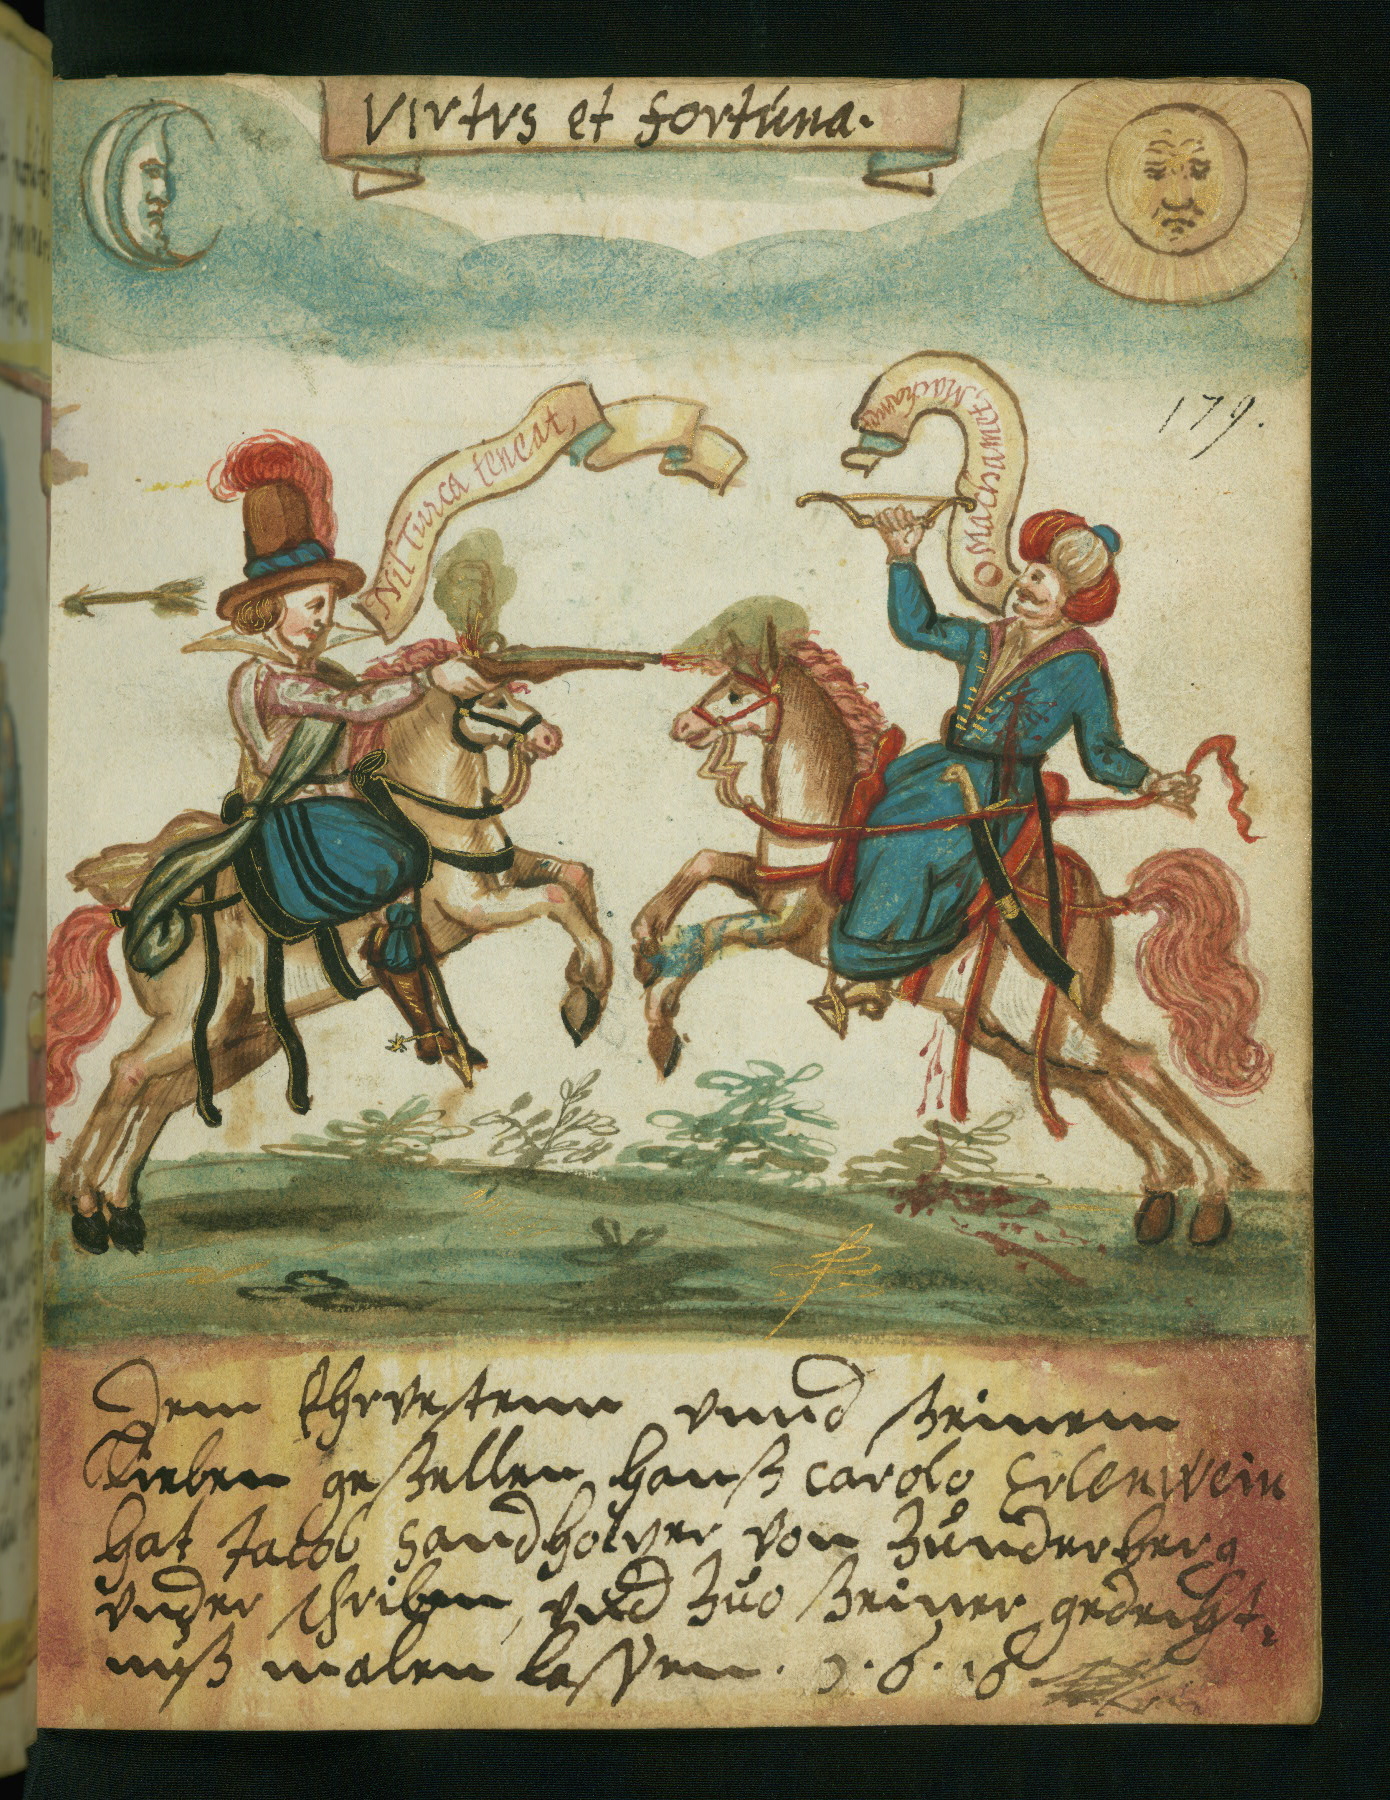 Virtvs et fortúna.
179.
Nil Turca tencat,
O Mirzamonet, Machame
Dem Ehrvestenn vnnd Meinem
Lieben geßellen hanß carolo Erlenwein
hat Jacob Handholzer von Zůnderberg
vnder schriben, vnd Zuo Meiner gedecht,
nuß malen lassen.